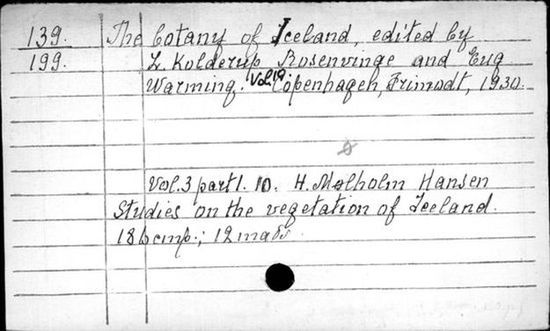 139. The botany of Iceland, edited by
199. L. Kolderup Rosenvinge and Eug
Warming. Vol. Copenhagen, Frimodt, 1930.
Vol. 3 part 1. 10. H. Mølholm Hansen
Studies on the vegetation of Iceland.
186